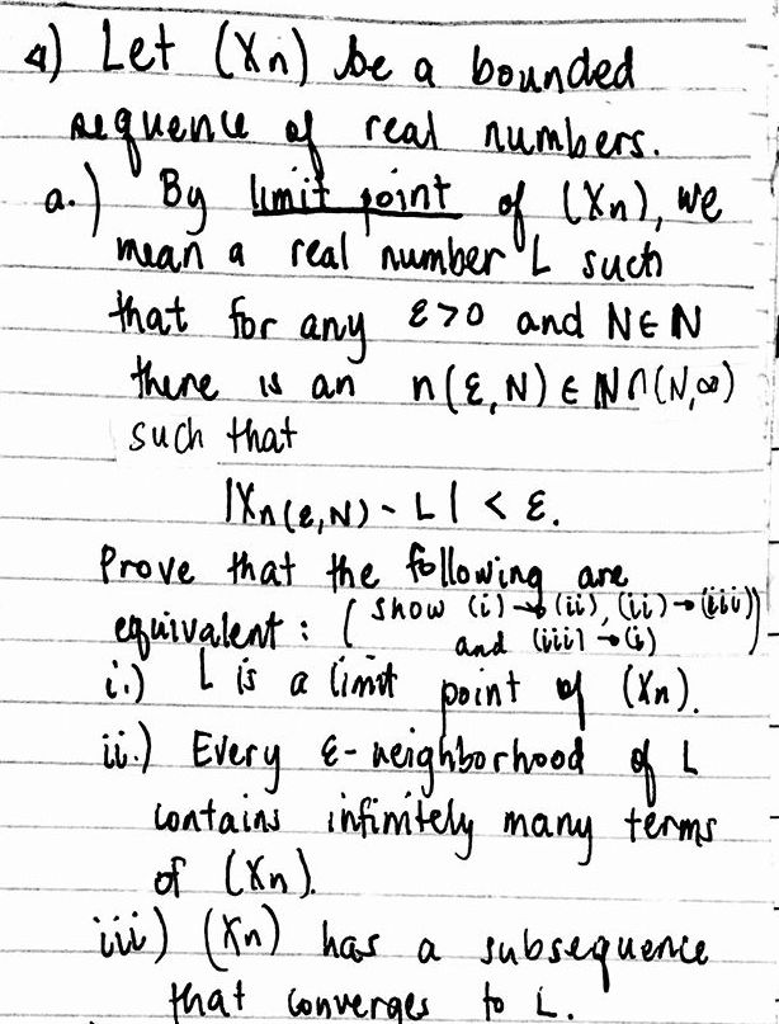 4) Let (Xn) be a bounded
sequence of real numbers.
a.) By limit point of (Xn), we
mean a real number L such
that for any ε>0 and N∈ℕ
there is an n(ε,N) ∈ ℕ∩(N,∞)
such that
|Xn(ε,N) - L| < ε.
Prove that the following are
equivalent: (show (i)→(ii), (ii)→(iii)
and (iii)→(i))
i.) L is a limit point of (Xn).
ii.) Every ε-neighborhood of L
contains infinitely many terms
of (Xn).
iii) (Xn) has a subsequence
that converges to L.